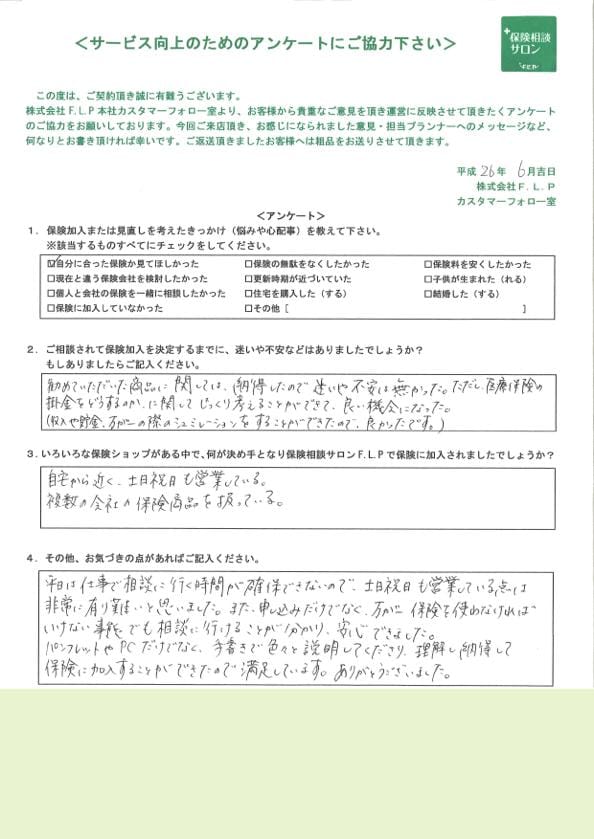 +保険相談
サロン
F.L.P
＜サービス向上のためのアンケートにご協力下さい＞
この度は、ご契約頂き誠に有難うございます。
株式会社Ｆ.Ｌ.Ｐ本社カスタマーフォロー室より、お客様から貴重なご意見を頂き運営に反映させて頂きたくアンケート
のご協力をお願いしております。今回ご来店頂き、お感じになられました意見・担当プランナーへのメッセージなど、
何なりとお書き頂ければ幸いです。ご返送頂きましたお客様へは粗品をお送りさせて頂きます。
平成 26年 6月吉日
株式会社Ｆ．Ｌ．Ｐ
カスタマーフォロー室
＜アンケート＞
１．保険加入または見直しを考えたきっかけ（悩みや心配事）を教えて下さい。
※該当するものすべてにチェックをしてください。
☑自分に合った保険か見てほしかった □保険の無駄をなくしたかった □保険料を安くしたかった
□現在と違う保険会社を検討したかった □更新時期が近づいていた □子供が生まれた（れる）
□個人と会社の保険を一緒に相談したかった □住宅を購入した（する） □結婚した（する）
□保険に加入していなかった □その他［ ］
２．ご相談されて保険加入を決定するまでに、迷いや不安などはありましたでしょうか？
もしありましたらご記入ください。
勧めていただいた商品に関しては、納得したので迷いや不安は無かった。ただし、医療保険の
掛金をどうするのか、に関してじっくり考えることができて、良い機会になった。
(収入や貯金、万が一の際のシュミレーションをすることができたので、良かったです。)
３.いろいろな保険ショップがある中で、何が決め手となり保険相談サロンＦ.Ｌ.Ｐで保険に加入されましたでしょうか？
自宅から近く、土日祝日も営業している。
複数の会社の保険商品を扱っている。
４．その他、お気づきの点があればご記入ください。
平日は仕事で相談に行く時間が確保できないので、土日祝日も営業している点は
非常に有り難いと思いました。また、申し込みだけでなく、万が一保険を使わなければ
いけない事態でも相談に行けることが分かり、安心できました。
パンフレットやPCだけでなく、手書きで色々と説明してくださり、理解し納得して
保険に加入することができたので満足しています。ありがとうございました。